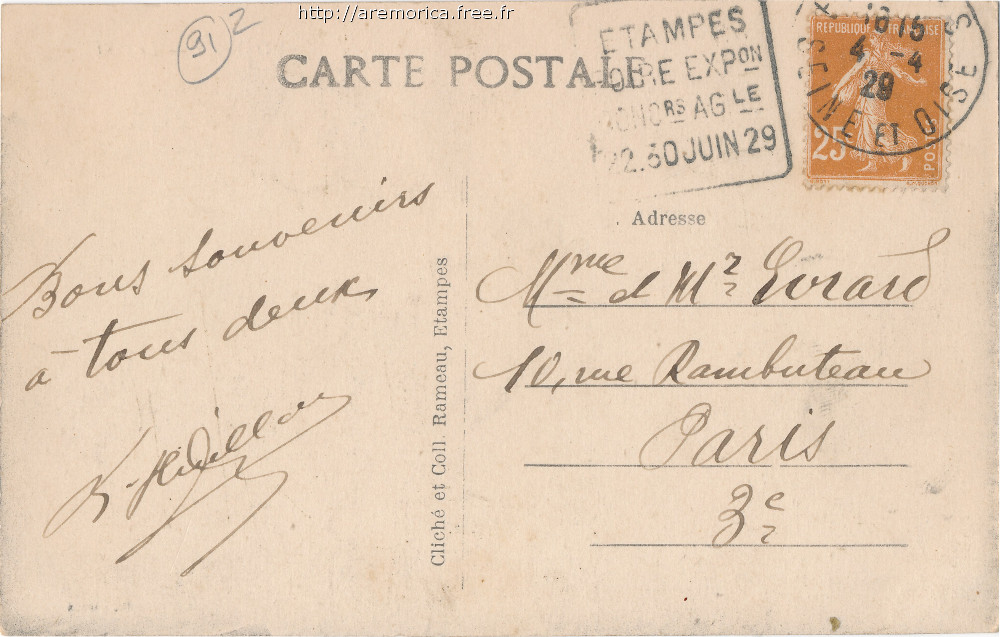 http://aremorica.free.fr
91 2
CARTE POSTALE
ETAMPES
FOIRE EXPON
CONCRS AGLE
22.30 JUIN 29
18 15
4 -4
29
SEINE ET OISE
REPUBLIQUE FRANÇAISE
25
POSTES
Adresse
Bons souvenirs
à tous deux
Cliché et Coll. Rameau, Etampes
Mme et Mr Evrard
10, rue Rambuteau
Paris
3e